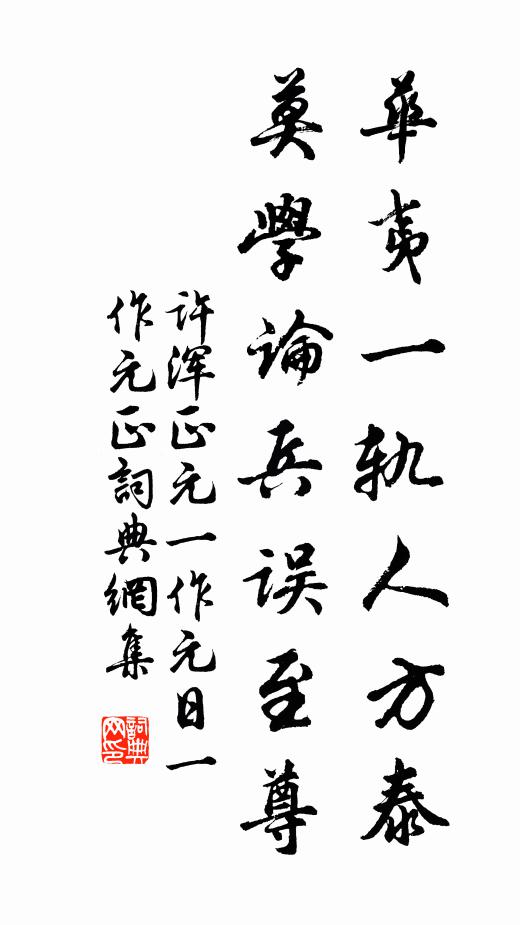 華夷一軌人方泰
莫學論兵误至尊
许浑正元一作元日一
作元正詞典網集
詞典
网印